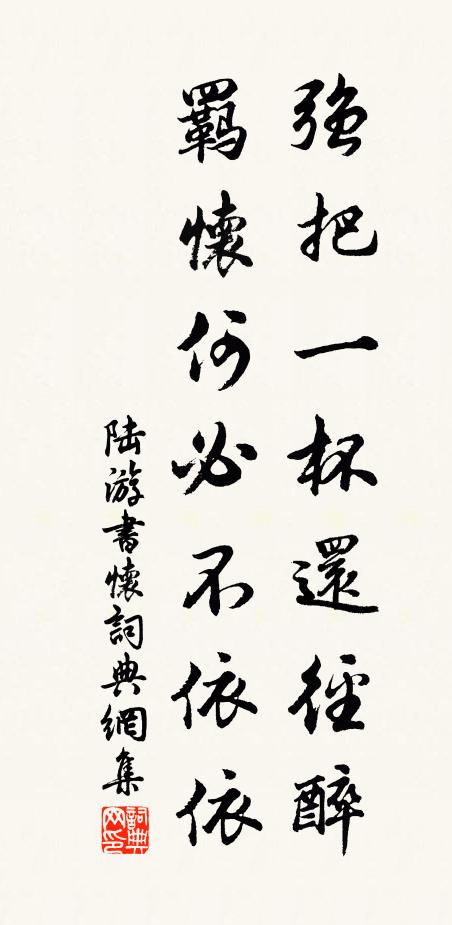 強把一杯還徑醉
羈懷何必不依依
陸游書懷詞典網集
詞典网印